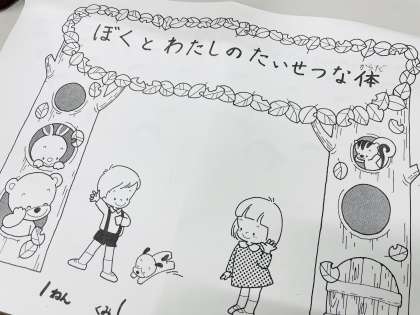 ぼくとわたしのたいせつな体
からだ
1ねん くみ